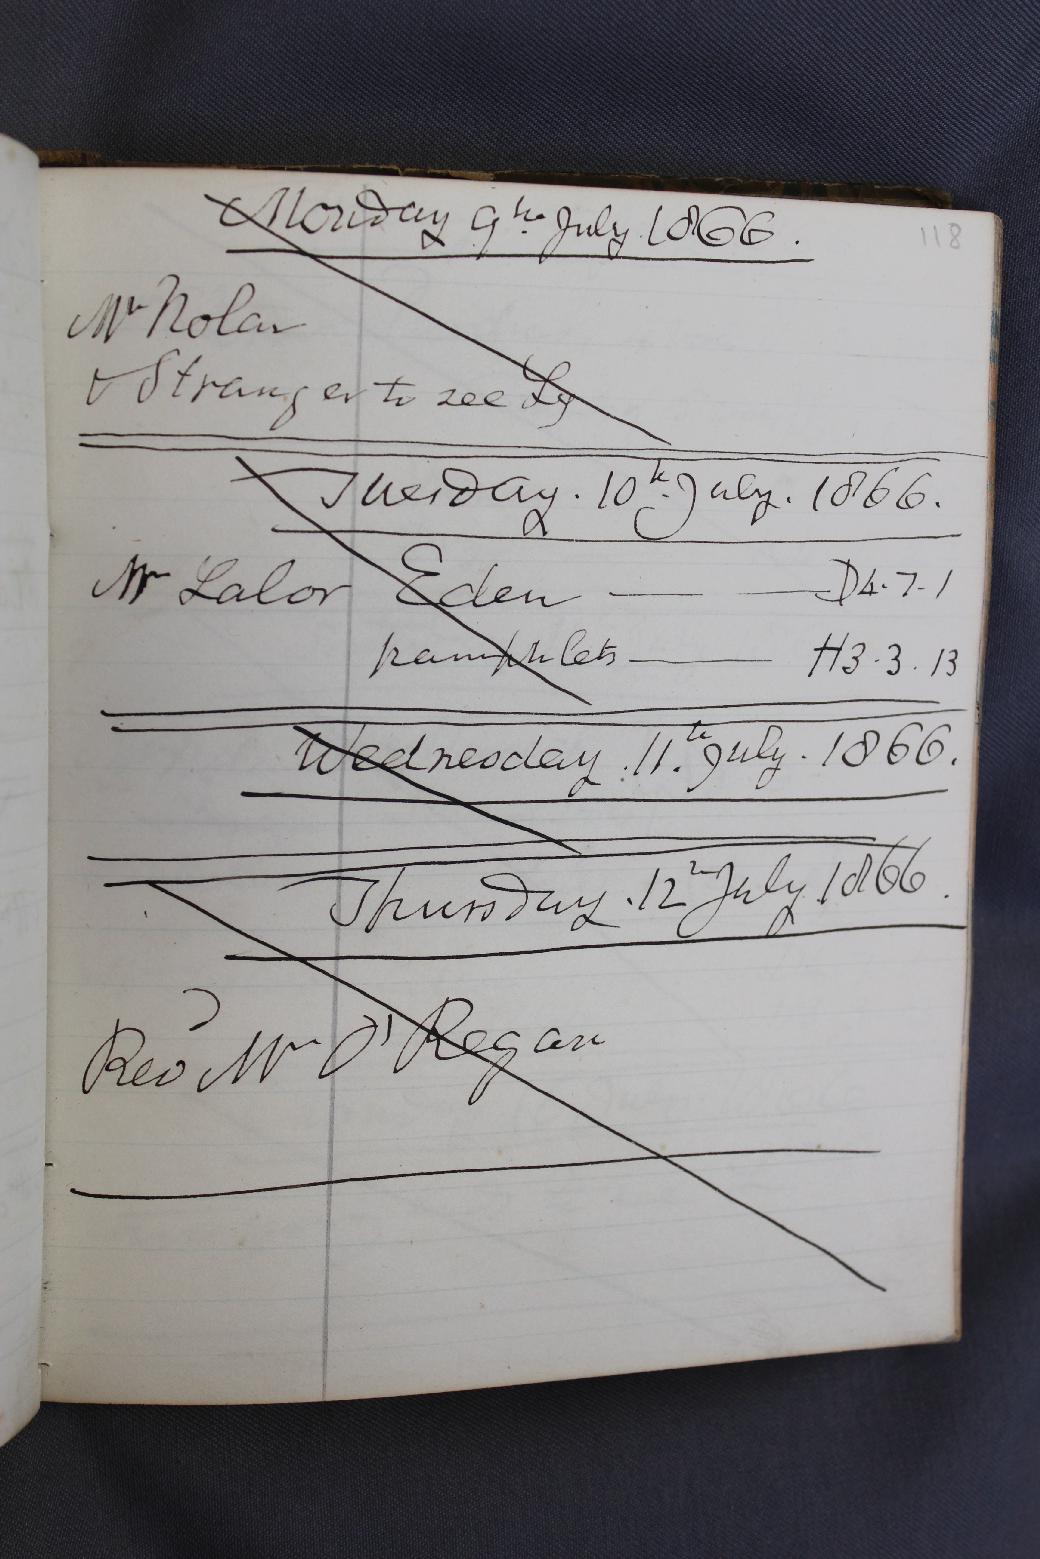 118
Monday 9th July 1866.
Mr Nolan
& Stranger to see Ly
Tuesday. 10th July. 1866.
Mr Lalor Eden — — D4.7.1
pamphlets — H3.3.13
Wednesday. 11th July. 1866.
Thursday. 12th July 1866.
Revd Mr O'Regan